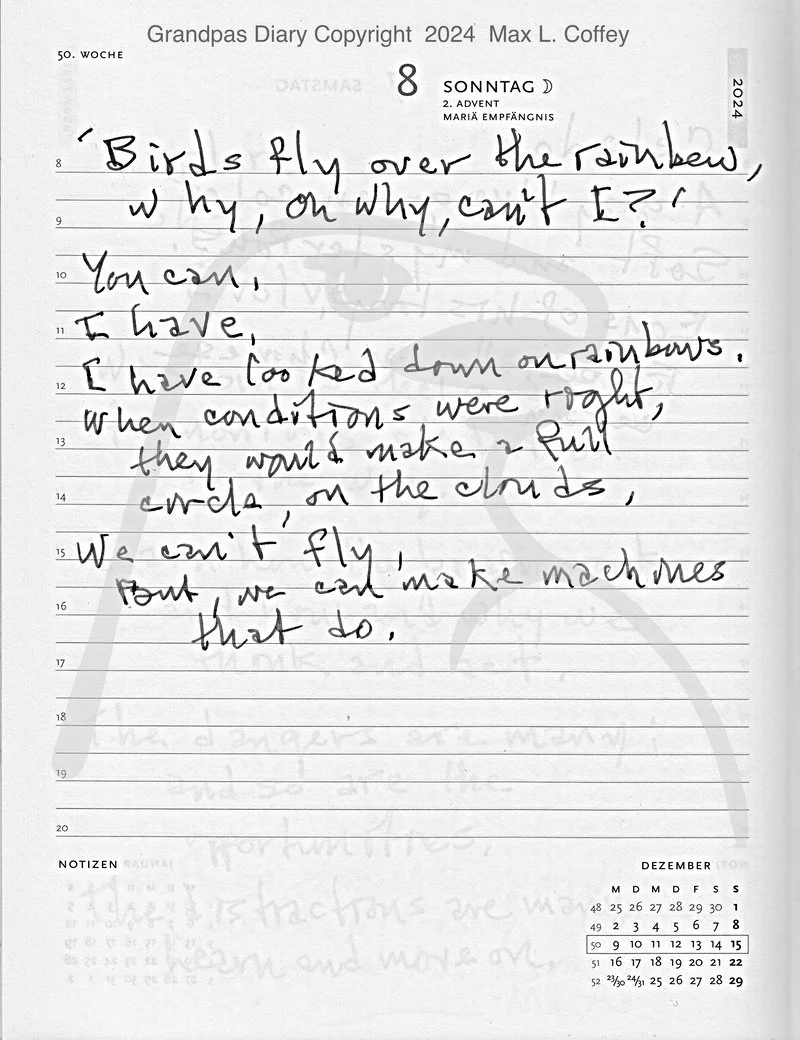 Grandpas Diary Copyright 2024 Max L. Coffey
50. WOCHE
8 SONNTAG
2. ADVENT
MARIÄ EMPFÄNGNIS
2024
'Birds fly over the rainbow,
why, oh why, can't I?'
You can,
I have,
I have looked down on rainbows.
When conditions were right,
they would make a full
circle, on the clouds,
We can't fly,
But, we can make machines
that do.
8
9
10
11
12
13
14
15
16
17
18
19
20
NOTIZEN
DEZEMBER
M D M D F S S
48 25 26 27 28 29 30 1
49 2 3 4 5 6 7 8
50 9 10 11 12 13 14 15
51 16 17 18 19 20 21 22
52 23/30 24/31 25 26 27 28 29
The dangers are many;
and so are the
opportunities.
The distractions are many